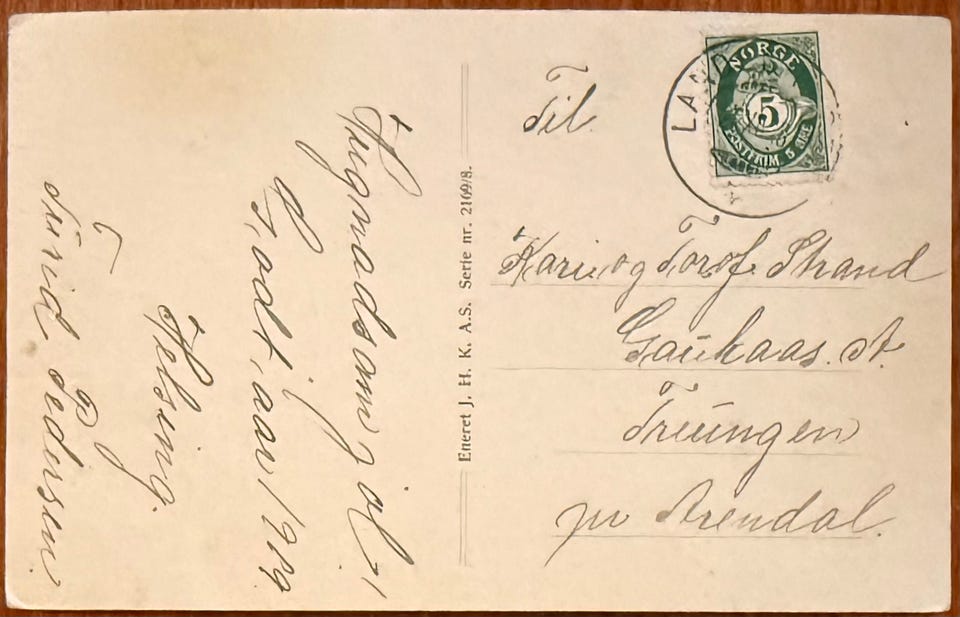 Hugnadsam jol!
Godt aar 1919.
Helsing.
Turid Pedersen.
Eneret J. H. K. A.S. Serie nr. 2169/8.
NORGE
5
POSTFRIM. 5 ØRE
LAND
Til
Kari og Torof Strand
Gaukaas. st.
Treungen
pr Arendal.